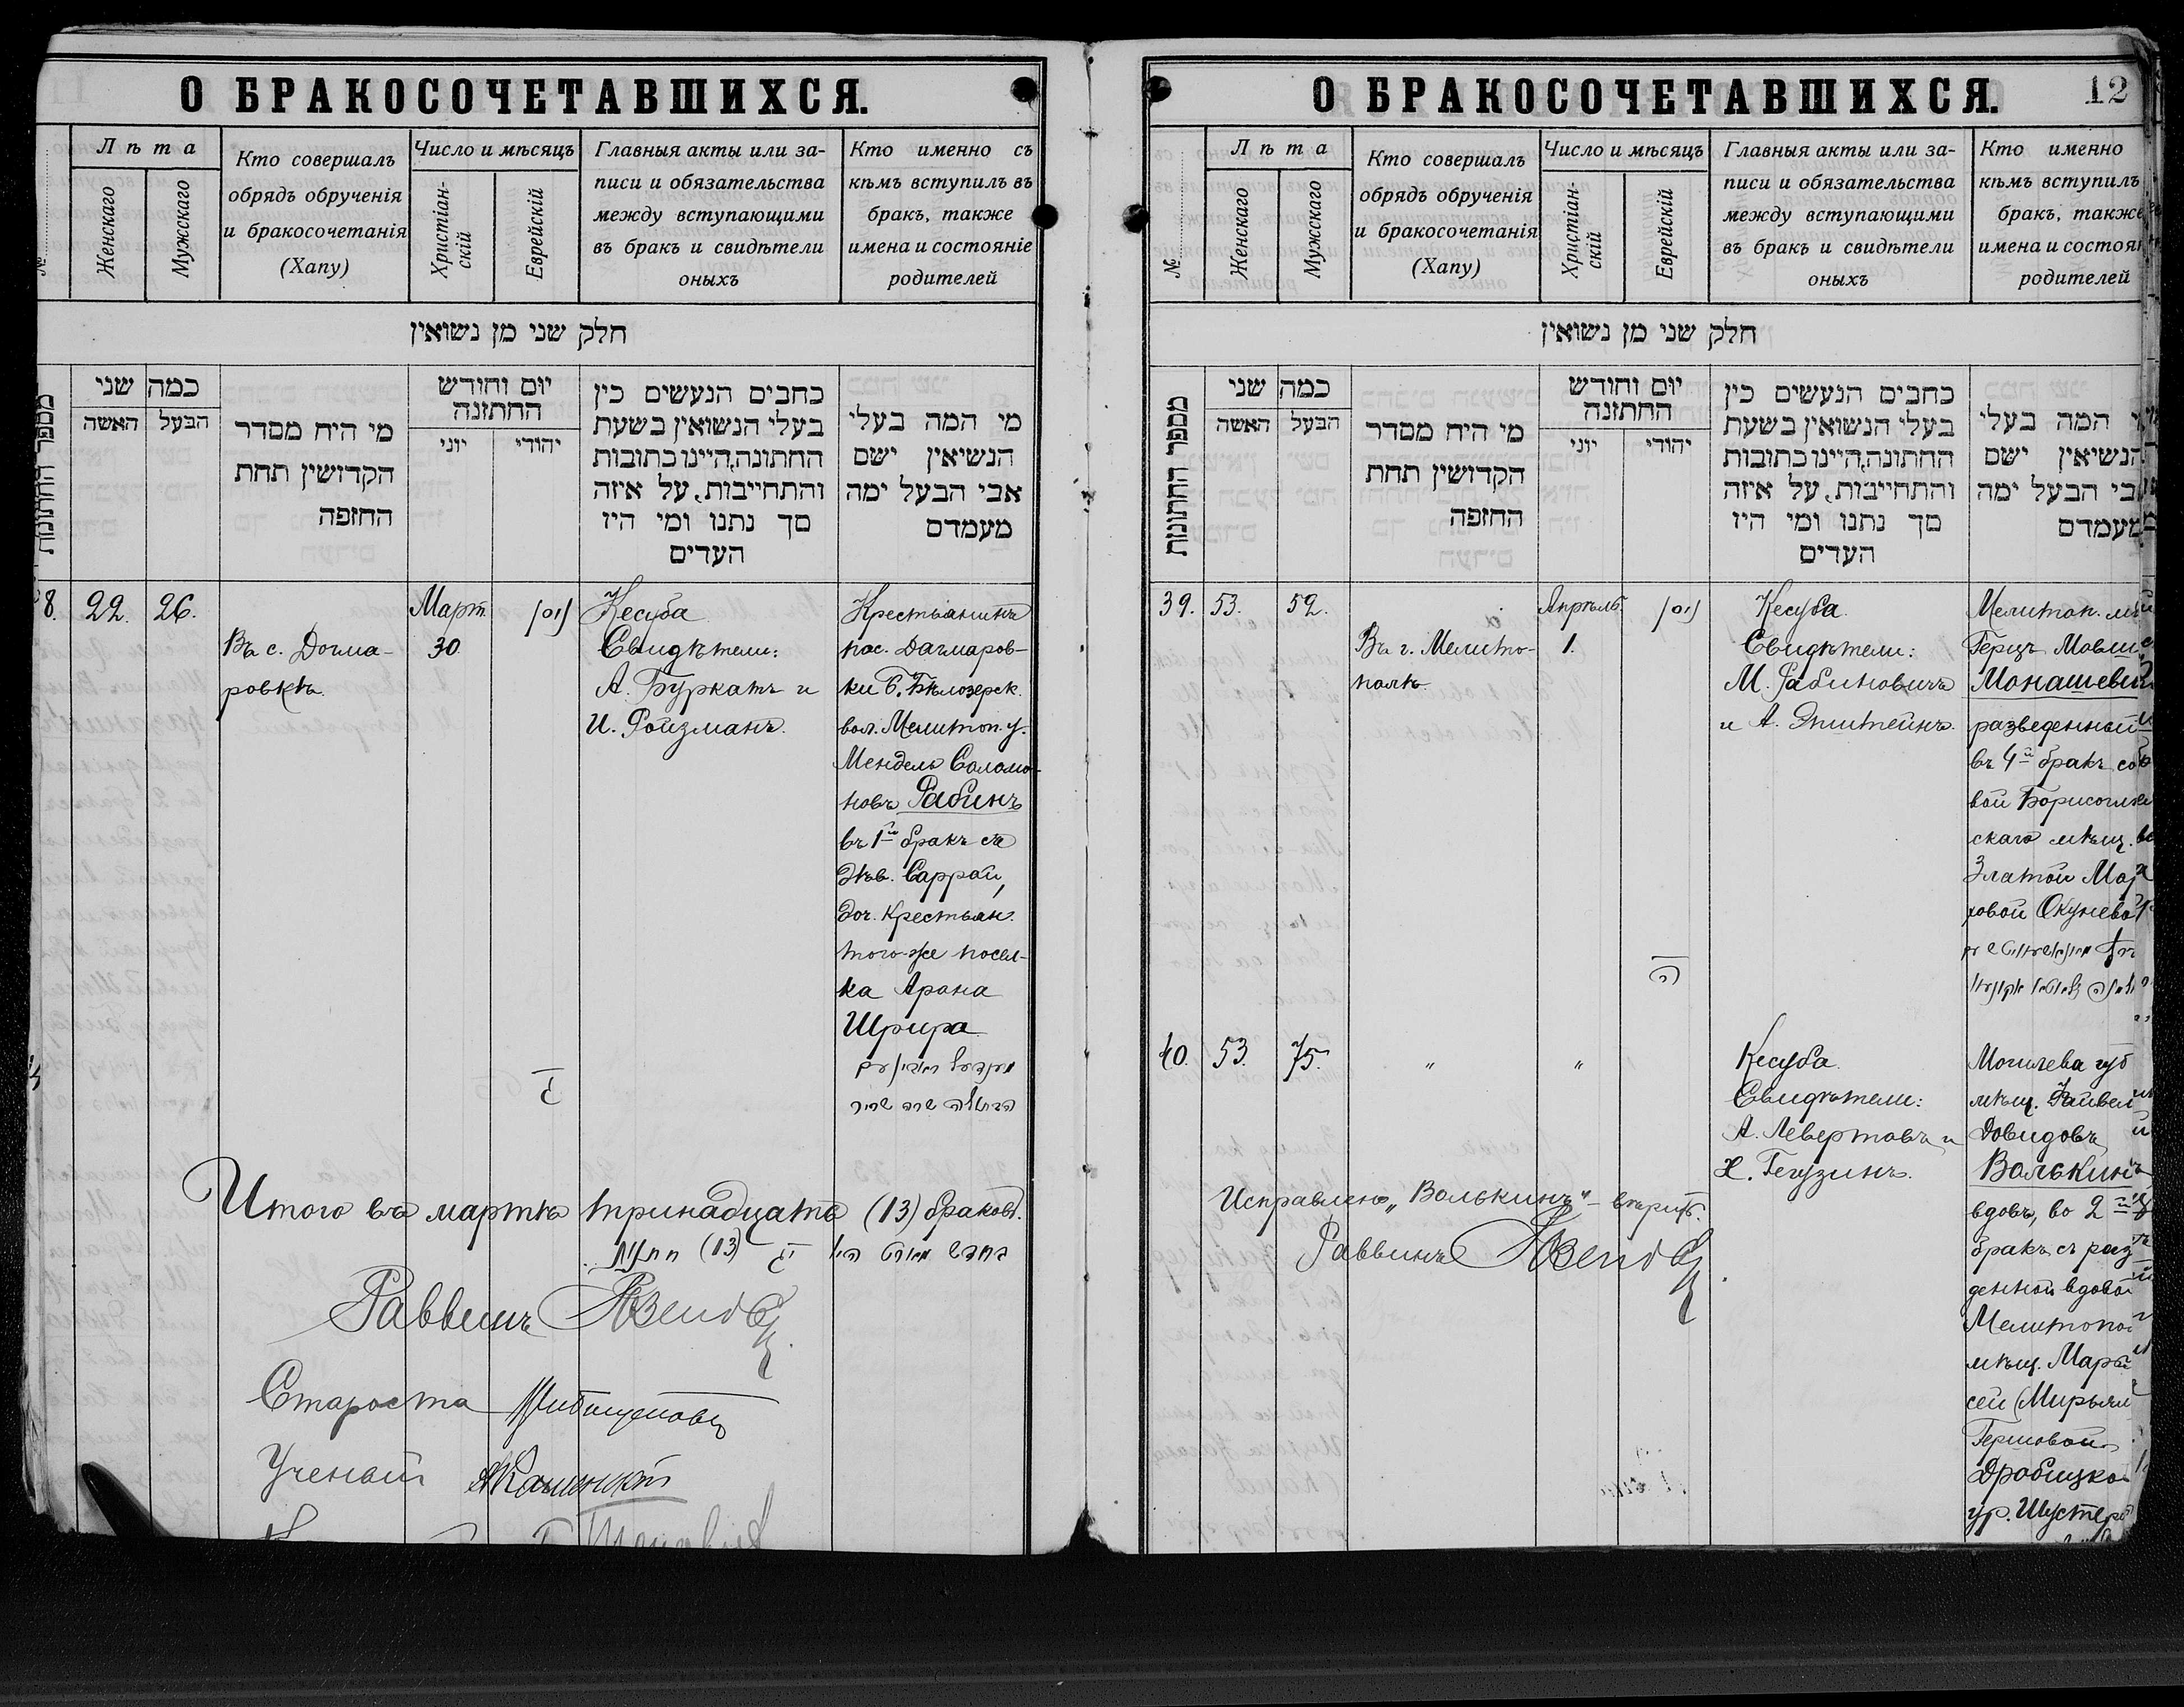 О БРАКОСОЧЕТАВШИХСЯ.
№
Лѣта
Женскаго
Мужскаго
Кто совершалъ
обрядъ обрученія
и бракосочетанія
(Хапу)
Число и мѣсяцъ
Христіан-
скій
Еврейскій
Главныя акты или за-
писи и обязательства
между вступающими
въ бракъ и свидѣтели
оныхъ
Кто именно съ
кѣмъ вступилъ въ
бракъ, также
имена и состояніе
родителей
חלק שני מן נשואין
מספר החתונות
כמה שני
הבעל
האשה
מי היח מסדר
הקדושין תחת
החופה
יום וחודש
החתונה
יהודי
יוני
כחבים הנעשים כין
בעלי הנשואין בשעת
החתונה,היינו כתובות
והתחייבות, על איזה
סך נתנו ומי היו
העדים
מי המה בעלי
הנשיאין ישם
אבי הבעל ימה
מעמדם
8.
22.
26.
Въ с. Догма-
ровкѣ.
Март.
30.
ניסן
Кесуба
Свидѣтели:
А. Буркатъ и
И. Ройзманъ.
Крестьянинъ
пос. Дагмаров-
ки Б. Бѣлозерск.
вол. Мелитоп. у.
Мендель Соломо-
новъ Рабинъ
въ 1й бракъ съ
дѣв. Саррой,
доч. крестьян.
того-же посел-
ка Арона
Шрира
Итого въ мартѣ тринадцать (13) браковъ.
(13)
Раввинъ
Староста
Ученый
О БРАКОСОЧЕТАВШИХСЯ.
12
№
Лѣта
Женскаго
Мужскаго
Кто совершалъ
обрядъ обрученія
и бракосочетанія
(Хапу)
Число и мѣсяцъ
Христіан-
скій
Еврейскій
Главныя акты или за-
писи и обязательства
между вступающими
въ бракъ и свидѣтели
оныхъ
Кто именно
кѣмъ вступилъ
бракъ, также
имена и состоя
родителей
חלק שני מן נשואין
מספר החתונות
כמה שני
הבעל
האשה
מי היח מסדר
הקדושין תחת
החופה
יום וחודש
החתונה
יהודי
יוני
כחבים הנעשים כין
בעלי הנשואין בשעת
החתונה,היינו כתובות
והתחייבות, על איזה
סך נתנו ומי היו
העדים
המה בעלי
הנשיאין ישם
אבי הבעל ימה
מעמדם
39.
53.
52.
Въ г. Мелито-
полѣ.
Апрѣль.
1.
ניסן
ה
Кесуба.
Свидѣтели:
М. Рабиновичъ
и А. Эпштейнъ.
Мелитоп.
Герцъ Мовш
Монашеви
разведенный
въ 4й бракъ со
вой Борисоглѣб
скаго мѣщ.
Златой Мор
ковой Окунево
40.
53.
75.
"
"
Кесуба.
Свидѣтели:
А. Левертовъ и
Х. Гегузинъ.
Могилева губ
мѣщ. Файвел
Довидовъ
Волькинъ
вдовъ, во 2й
бракъ съ раз
денной вдовой
Мелитопо
мѣщ. Марь
сей (Мирьям
Гершовой
Дробицко
ур. Шустер
Исправлено „Волькинъ" - вѣрно.
Раввинъ